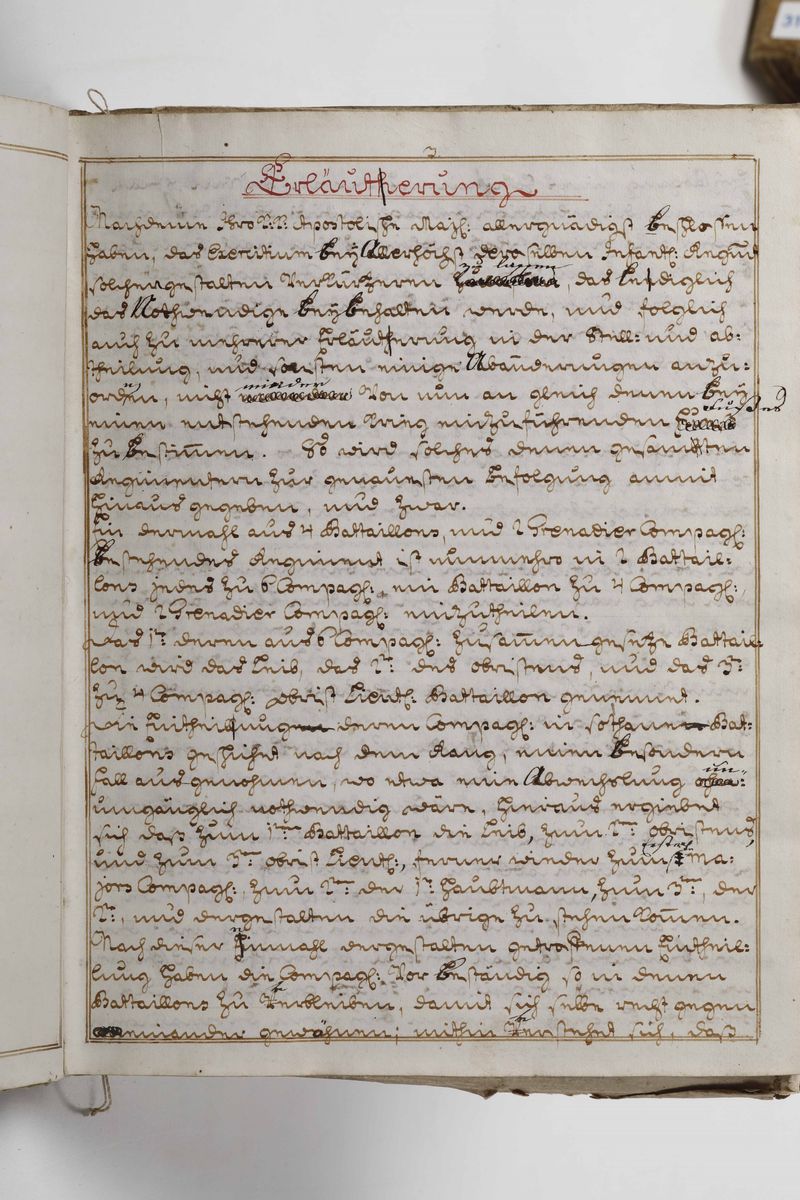 3.
Erläutherung
Nachdeme Ihro K: K: Apostolische Maj: allergnädigst beschlossen
haben, das Exercitium bey Allerhöchst deroselben Infant: Regimt
solchergestalten Verkürzeren zu lassen, das lediglich
das Nothwendige beybehalten werde, und folglich
auch zu mehrerer Erläutherung in der Stell: und ab:
theilung, und sonsten einige Abänderungen anzu:
ordnen, nicht minder Von nun an gleich denen bey
einem entstehenden Krieg einzuführenden Fusses
zu bestimmen. So wird solches denen gesamten
Regimentern zur genauesten befolgung anmit
hinausgegeben, und zwar.
Ein dermahl aus 4 Battaillons, und 2 Grenadier Compag:
bestehendes Regiment ist nunmehro in 2 Battail:
lons jedes zu 6 Compag:, ein Battaillon zu 4 Compag:,
und 2 Grenadier Compag: einzutheilen.
Das 1te deren aus 6 Compag: zusammengesetze Battail:
lon wird das Leib, das 2te des obristens, und das 3te
zu 4 Compag: obrist Lieut: Battaillon genennet.
Die Eintheilung deren Compag: in sothane Bat:
taillons geschihet nach dem Rang, einen besondern
fall ausgenohmen, wo etwa eine Abwechslung un-
umgänglich nothwendig wäre, hieraus ergiebet
sich daß zum 1ten Battaillon die Leib, zum 2ten obristens,
und zum 3ten obrist Lieut:, ferner wieder zum ersten Ma:
jors Compag:, zum 2ten der 1te Haubtmann, zum 3ten, der
2te, und dergestalten die übrige zu stehen kommen.
Nach dieser Einmahl dergestalten getroffenen Eintheil:
lung haben die Compag: Vor beständig so in denen
Battaillons zu Verbleiben, damit sich selbe recht gegen
einander gewöhnen; mithin Verstehet sich, daß